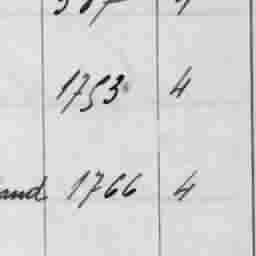 1753 4
and 1766 4